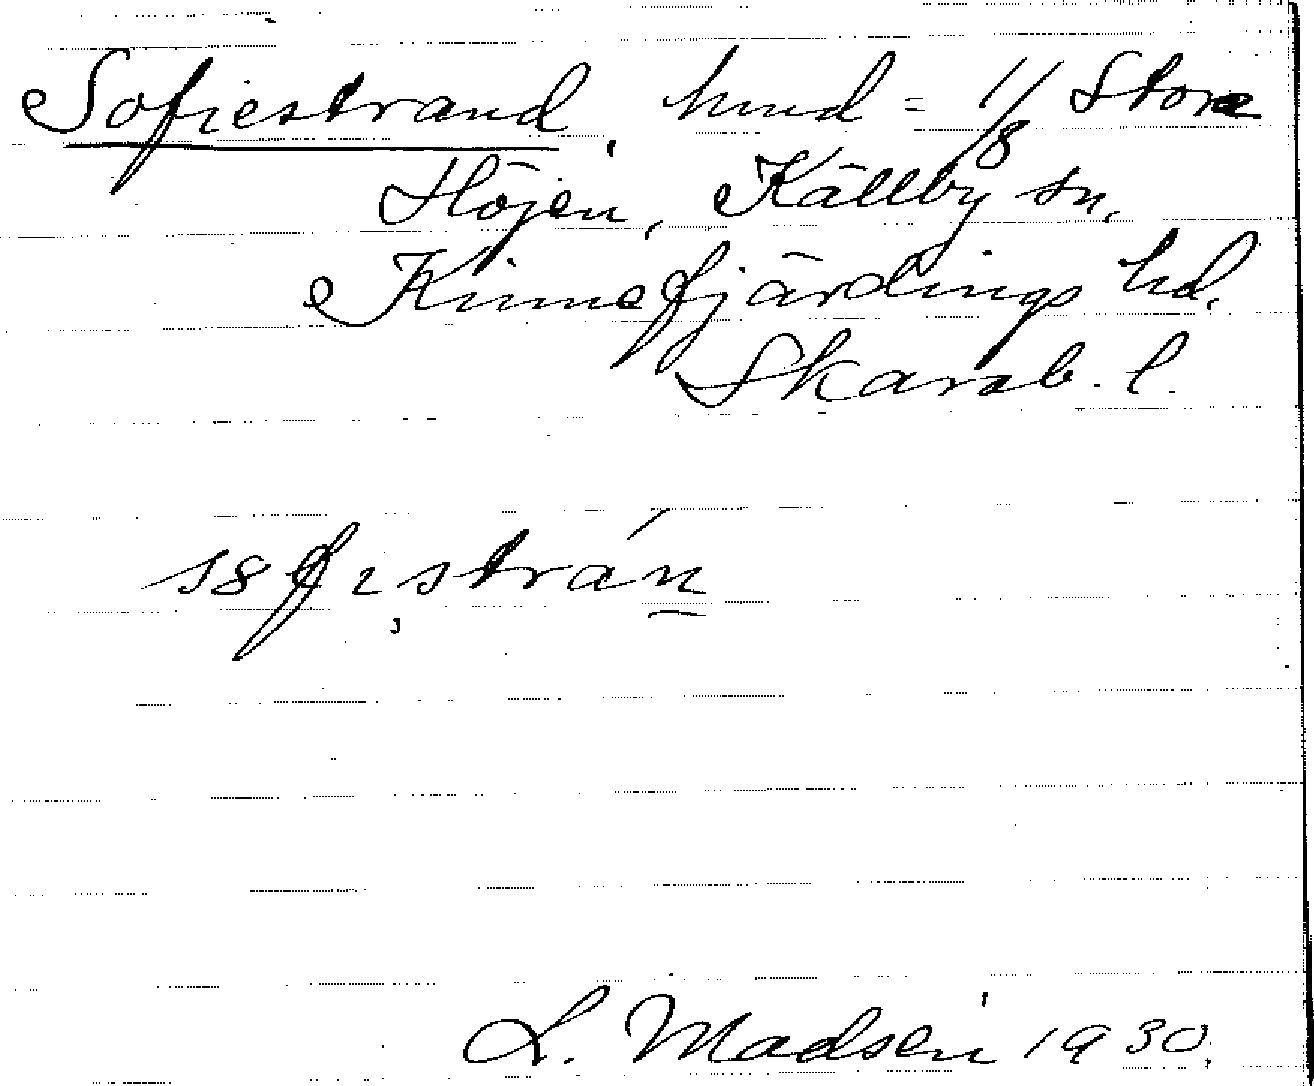 Sofiestrand, hmd = 1/8 Stora
Höjen, Källby sn,
Kinnefjärdings hd.
Skarab. l.
L. Madsén 1930.